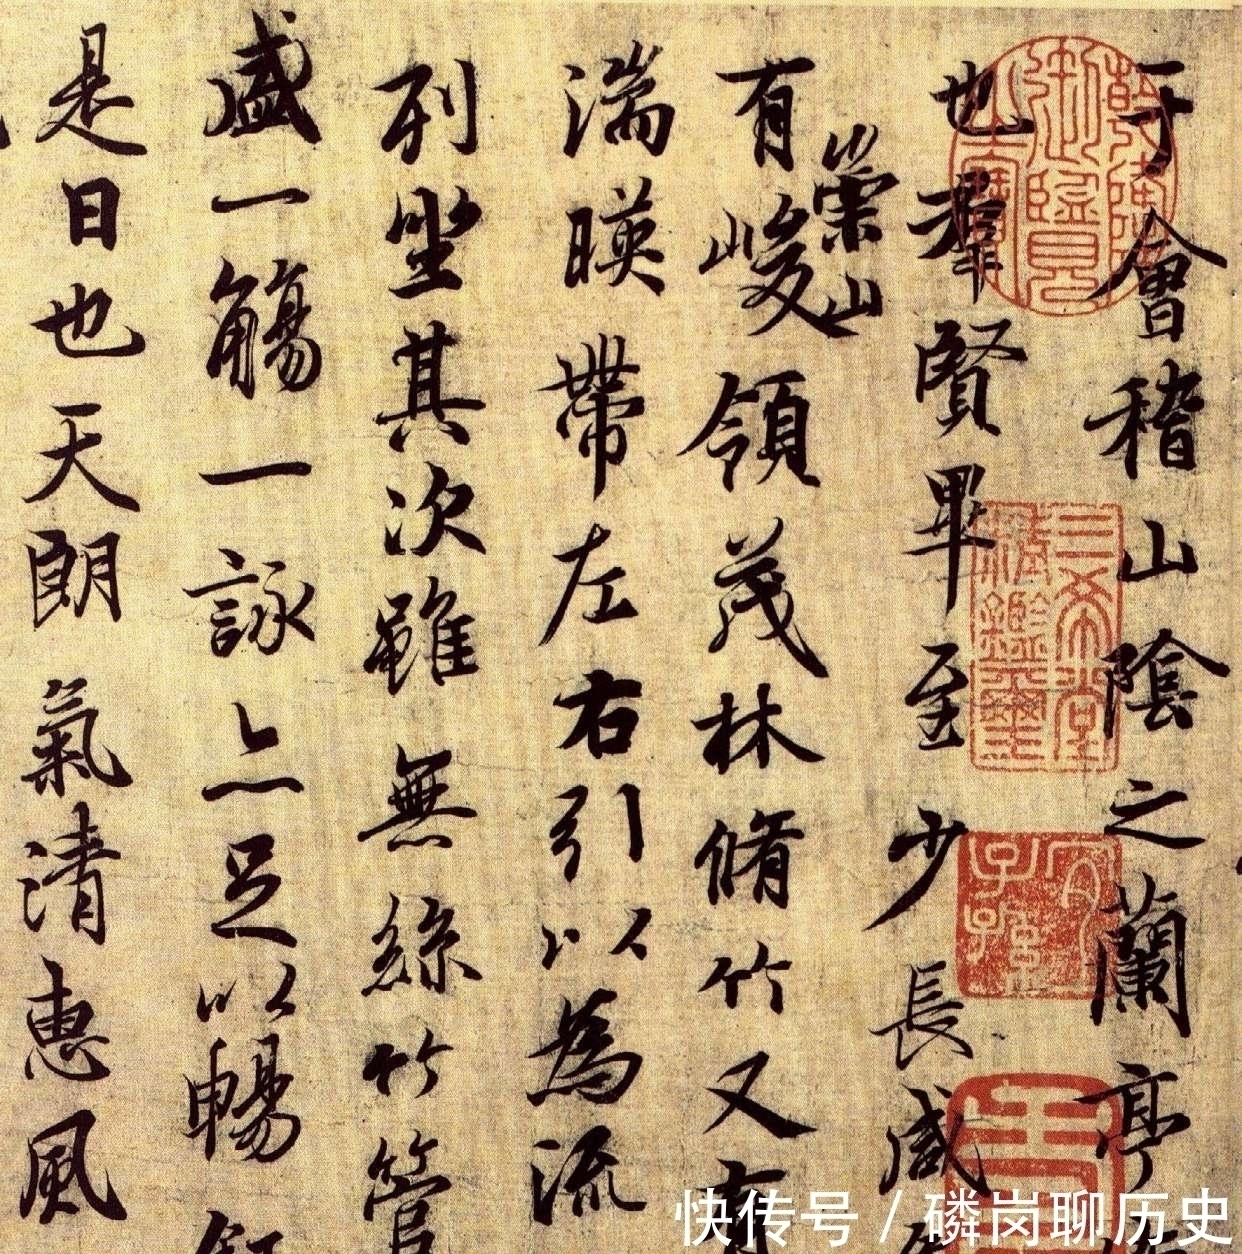 于會稽山陰之蘭亭
也羣賢畢至少長咸
崇山
有峻領茂林脩竹又有
湍暎帶左右引以為流
列坐其次雖無絲竹管
盛一觴一詠亦足以暢
是日也天朗氣清惠風
乾隆御覽之寶
三希堂精鑑璽
宜子孫
快传号 / 磷岗聊历史